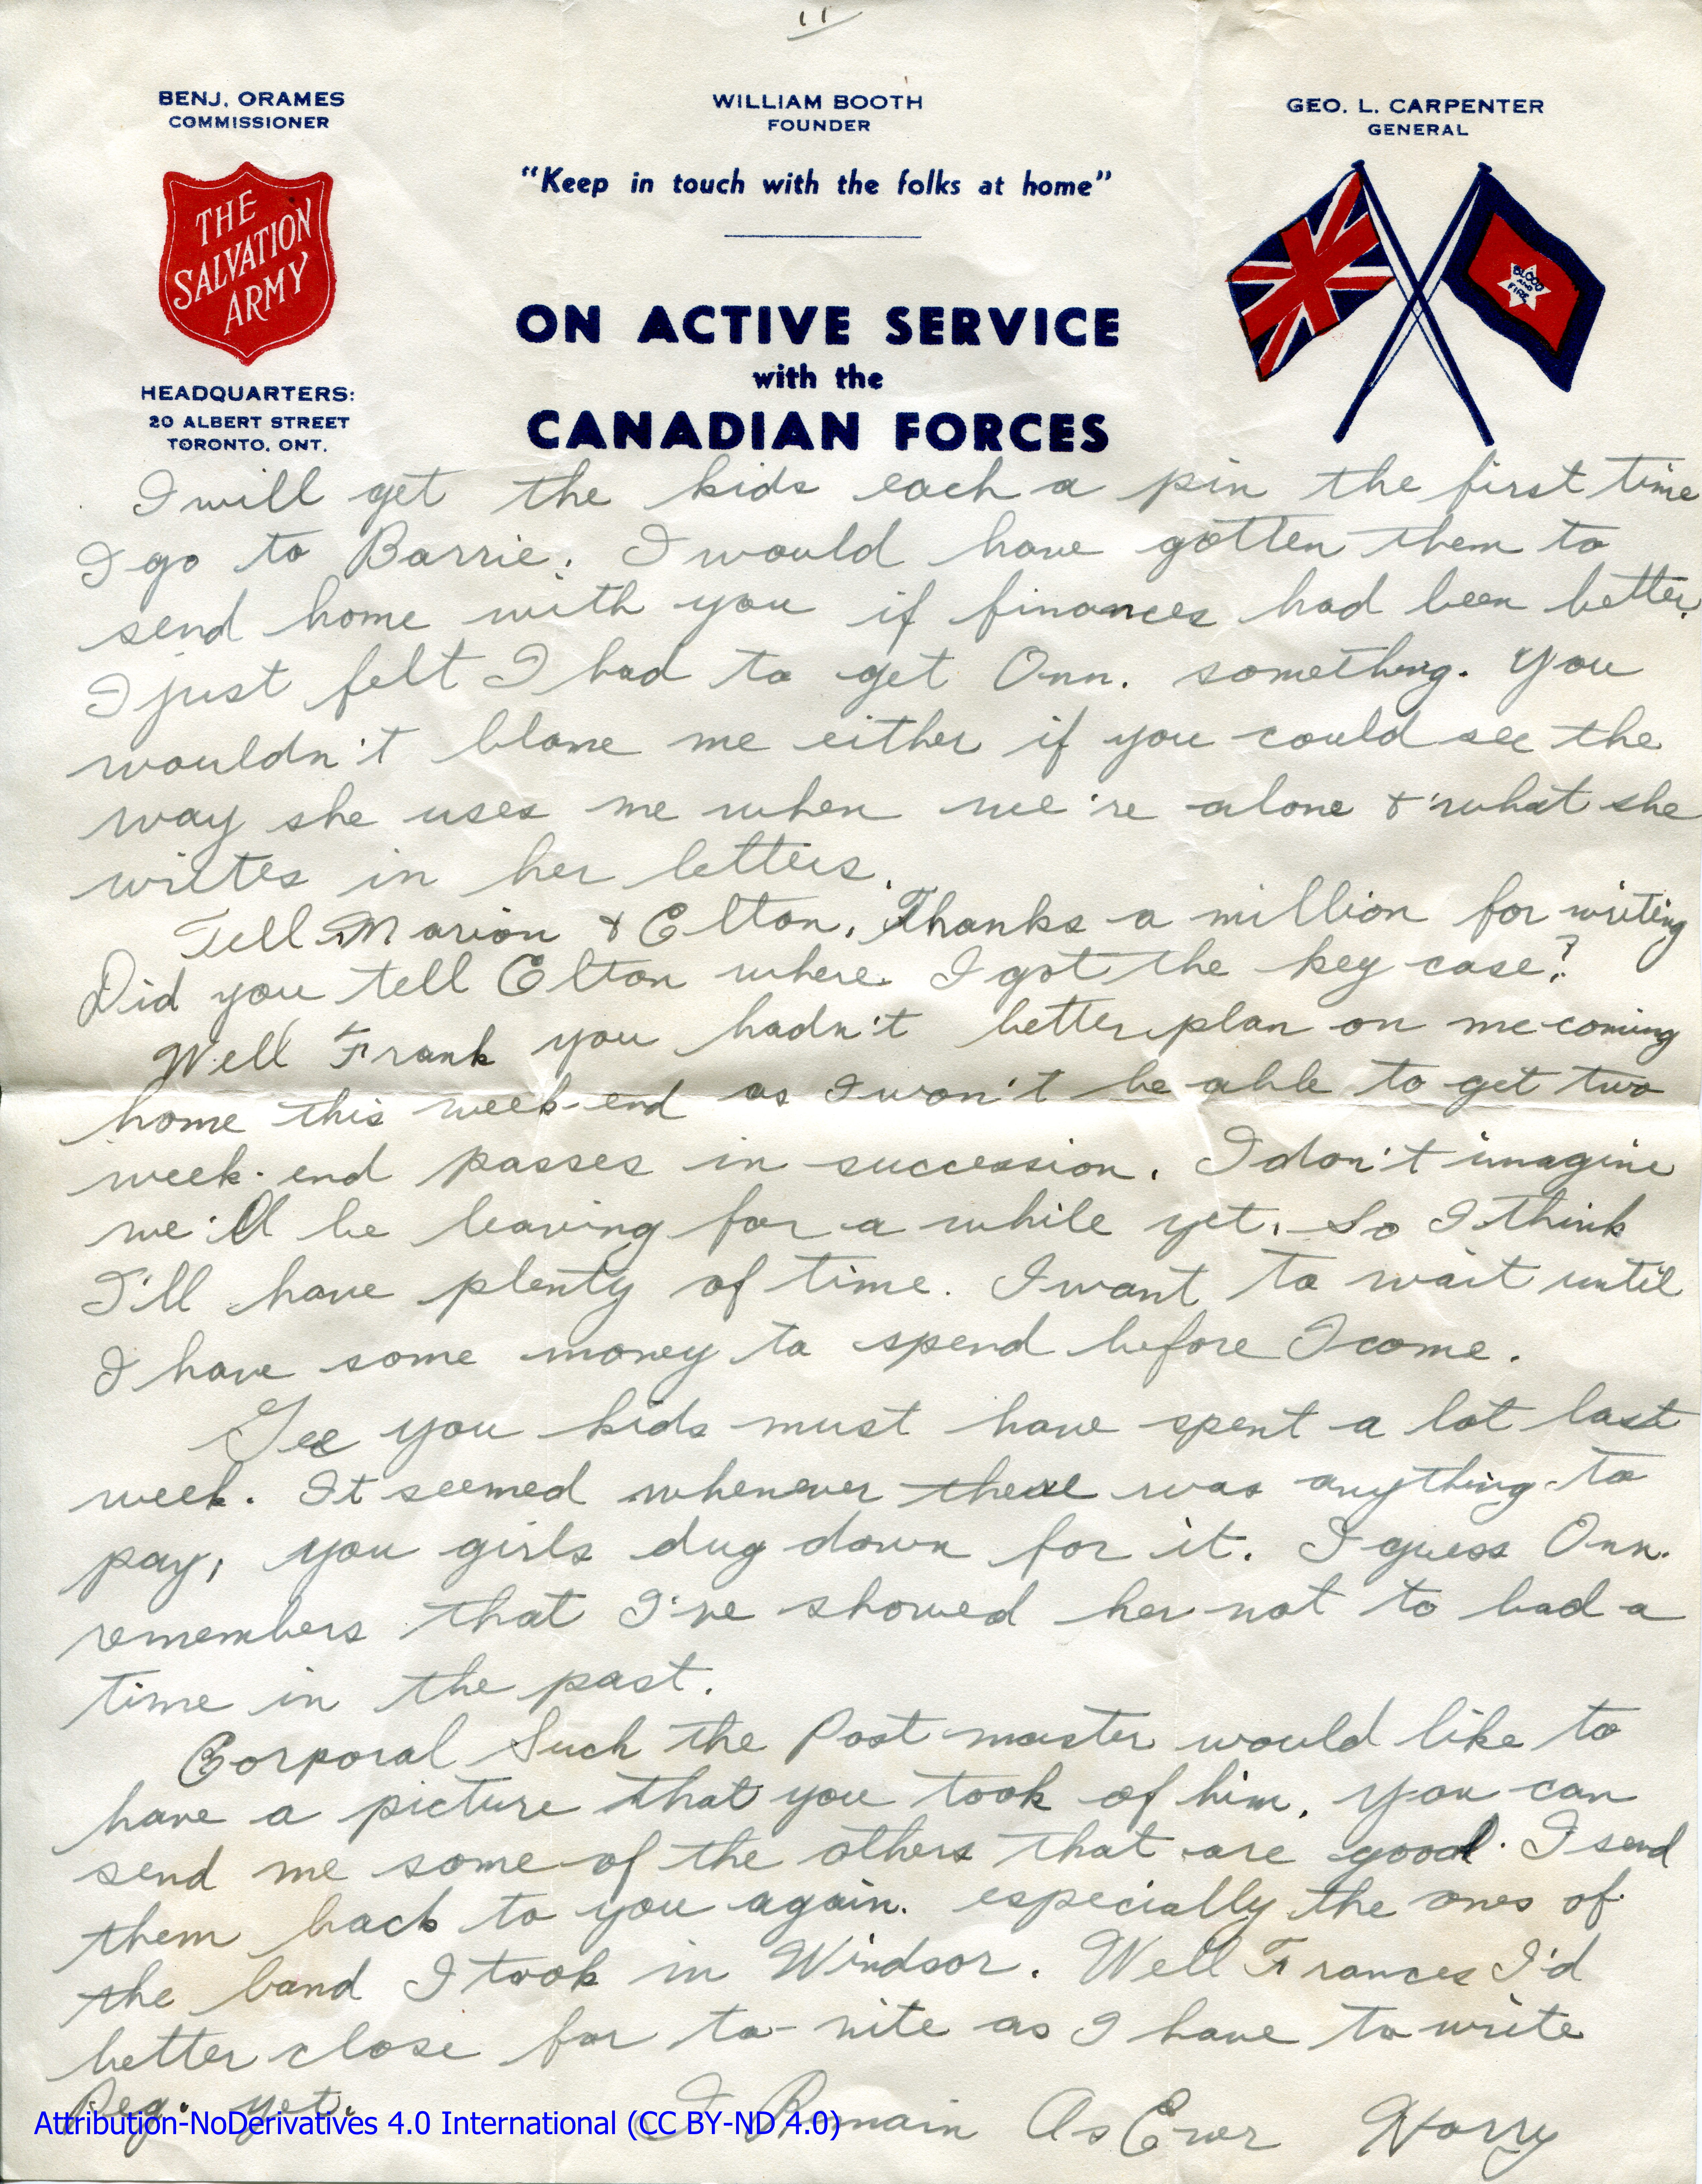 11
BENJ. ORAMES
COMMISSIONER
WILLIAM BOOTH
FOUNDER
GEO. L. CARPENTER
GENERAL
"Keep in touch with the folks at home"
THE
SALVATION
ARMY
BLOOD
AND
FIRE
ON ACTIVE SERVICE
with the
CANADIAN FORCES
HEADQUARTERS:
20 ALBERT STREET
TORONTO, ONT.
I will get the kids each a pin the first time
I go to Barrie. I would have gotten them to
send home with you if finances had been better.
I just felt I had to get Onn. something. You
wouldn't blame me either if you could see the
way she uses me when we're alone & what she
writes in her letters.
Tell Marion & Elton, Thanks a million for writing
Did you tell Elton where I got the key case?
Well Frank you hadn't better plan on me coming
home this week-end as I won't be able to get two
week-end passes in succession. I don't imagine
we'll be leaving for a while yet. So I think
I'll have plenty of time. I want to wait until
I have some money to spend before I come.
Gee you kids must have spent a lot last
week. It seemed whenever there was anything to
pay, you girls dug down for it. I guess Onn.
remembers that I've showed her not to bad a
time in the past.
Corporal Such the Post master would like to
have a picture that you took of him. You can
send me some of the others that are good. I send
them back to you again. especially the ones of
the band I took in Windsor. Well Frances I'd
better close for to-nite as I have to write
Reg. yet.
I Remain As Ever Harry
Attribution-NoDerivatives 4.0 International (CC BY-ND 4.0)